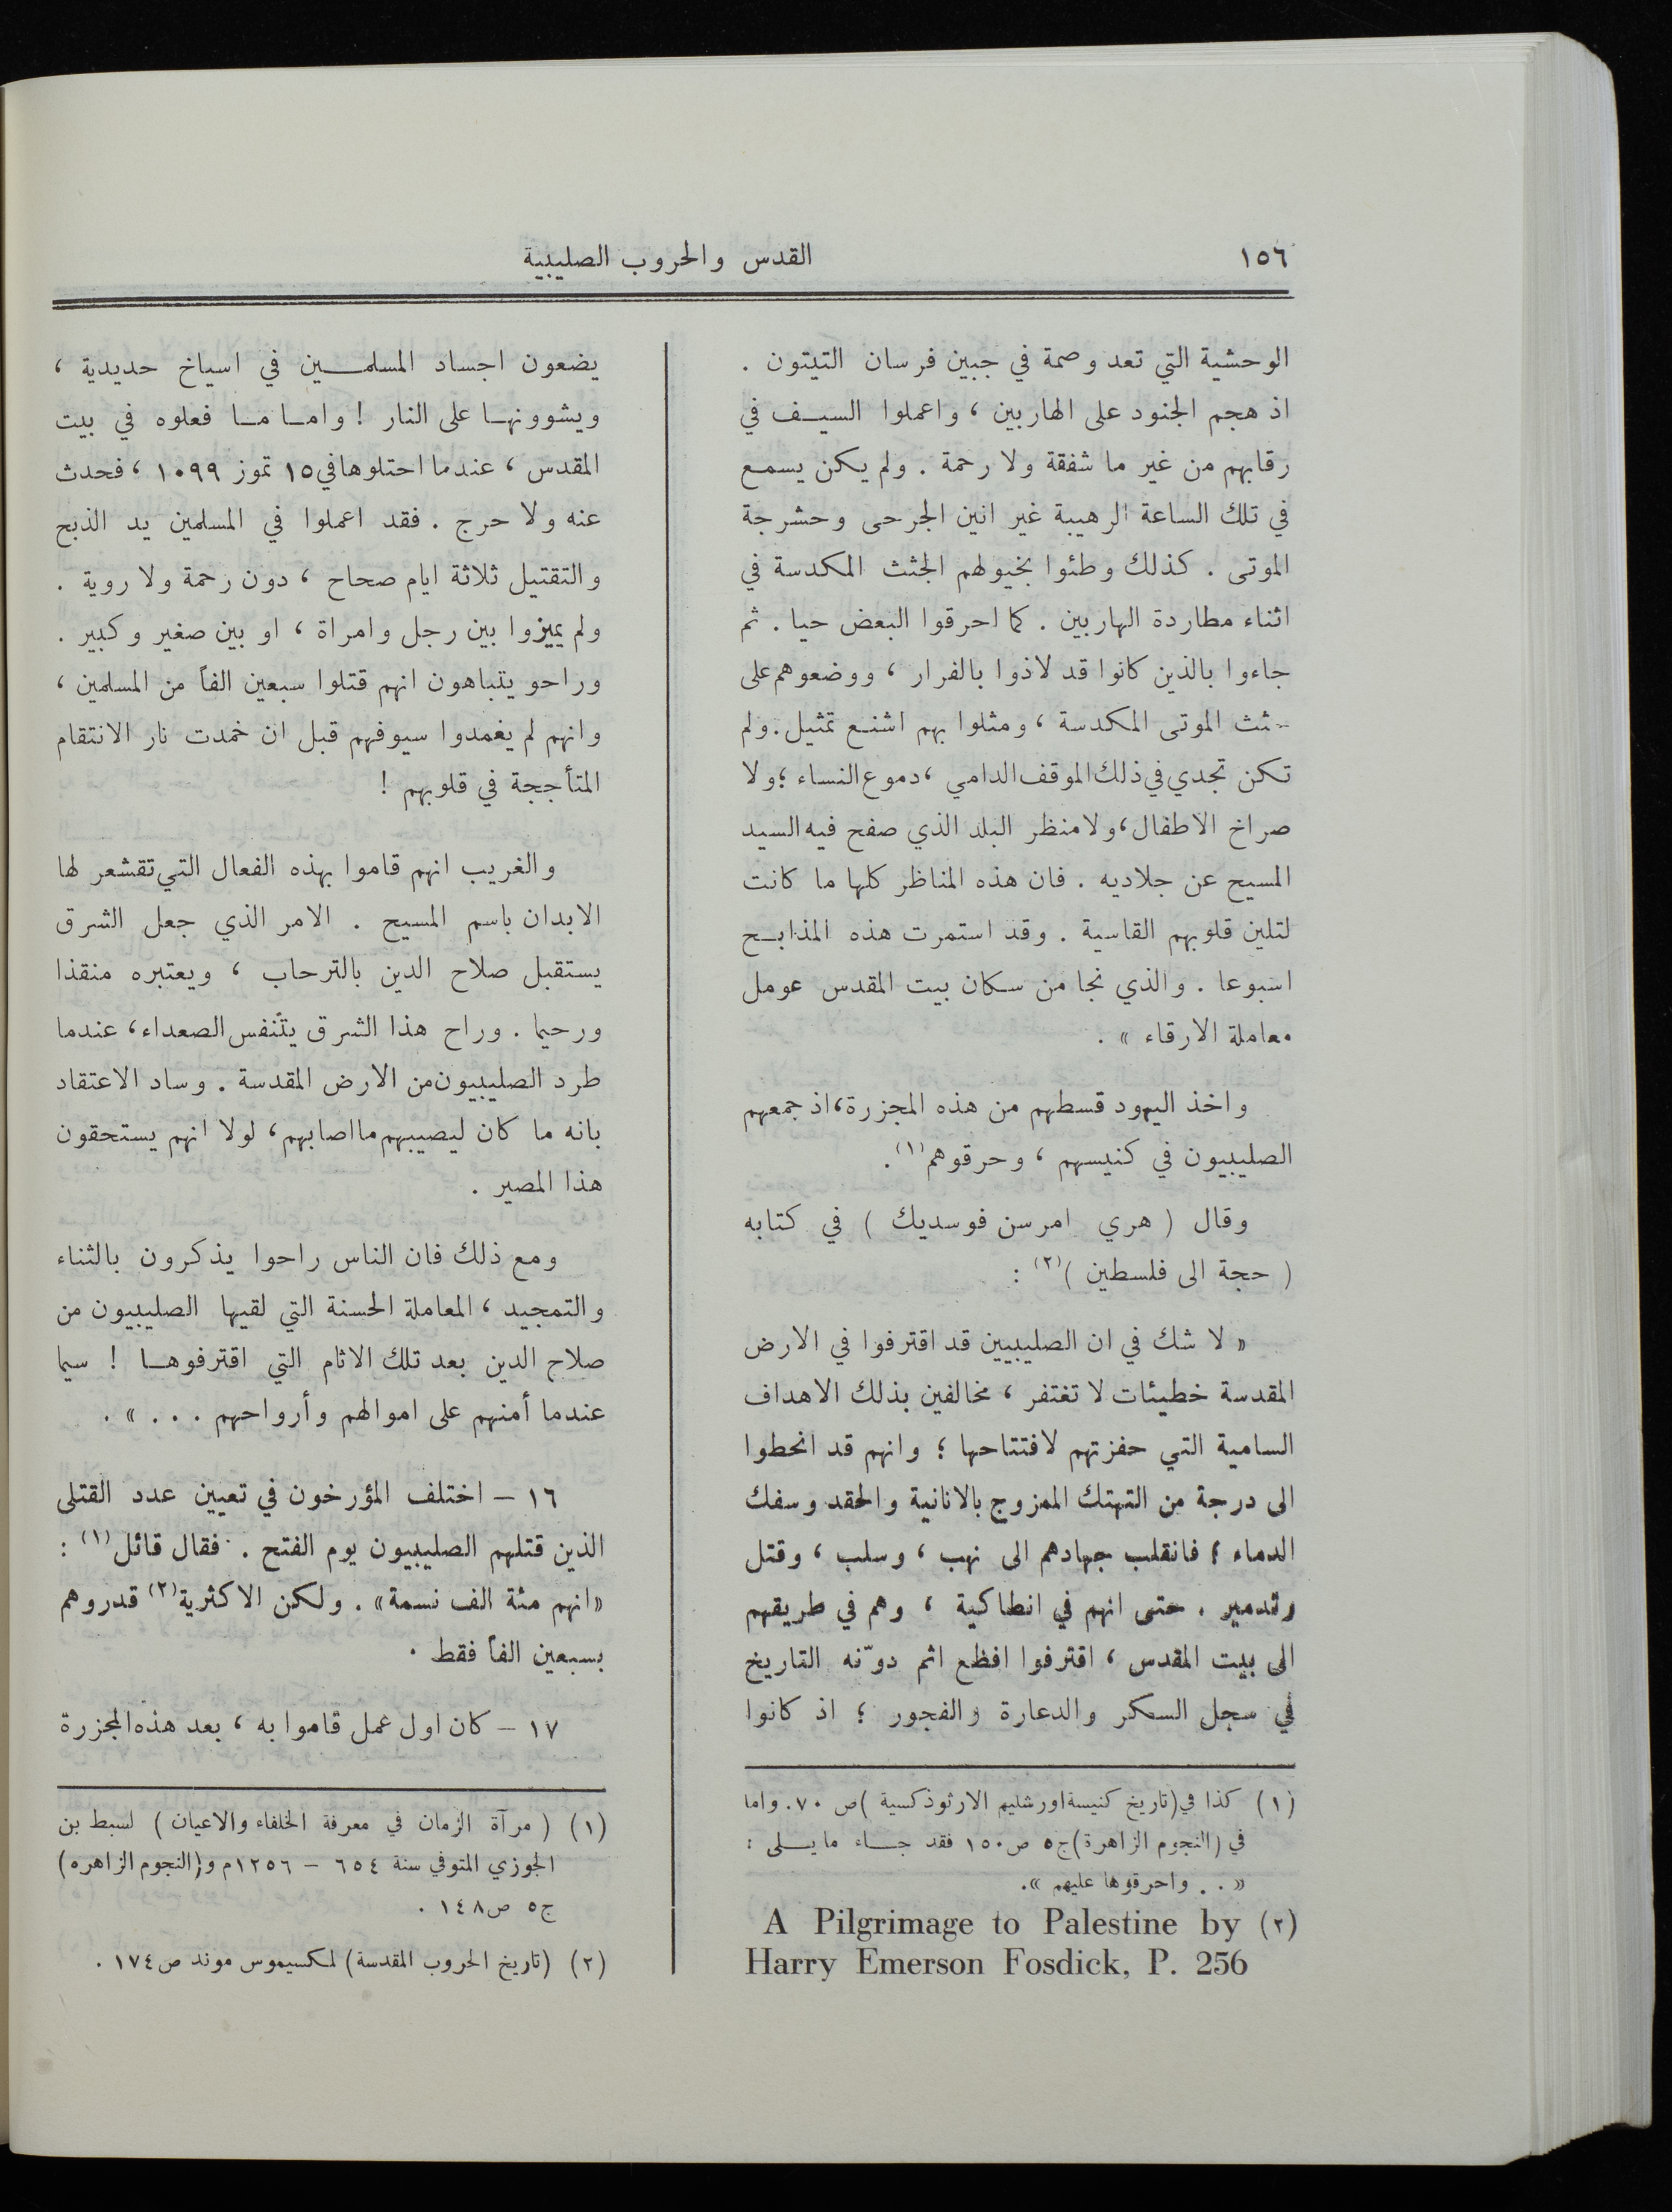 ١٥٦
القدس والحروب الصليبية
الوحشية التي تعد وصمة في جبين فرسان التيتون .
اذ هجم الجنود على الهاربين ، واعملوا السيف في
رقابهم من غير ما شفقة ولا رحمة . ولم يكن يسمع
في تلك الساعة الرهيبة غير انين الجرحى وحشرجة
الموتى . كذلك وطئوا بخيولهم الجثث المكدسة في
اثناء مطاردة الهاربين . كما احرقوا البعض حيا . ثم
جاءوا بالذين كانوا قد لاذوا بالفرار ، ووضعوهم على
جثث الموتى المكدسة ، ومثلوا بهم اشنع تمثيل . ولم
تكن تجدي في ذلك الموقف الدامي ، دموع النساء ؛ ولا
صراخ الاطفال ، ولا منظر البلد الذي صفح فيه السيد
المسيح عن جلاديه . فان هذه المناظر كلها ما كانت
لتلين قلوبهم القاسية . وقد استمرت هذه المذابح
اسبوعا . والذي نجا من سكان بيت المقدس عومل
معاملة الارقاء » .
واخذ اليهود قسطهم من هذه المجزرة ، اذ جمعهم
الصليبيون في كنيسهم ، وحرقوهم (١) .
وقال ( هري امرسن فوسديك ) في كتابه
( حجة الى فلسطين ) (٢) :
« لا شك في ان الصليبيين قد اقترفوا في الارض
المقدسة خطيئات لا تغتفر ، مخالفين بذلك الاهداف
السامية التي حفزتهم لافتتاحها ؛ وانهم قد انحطوا
الى درجة من التهتك الممزوج بالانانية والحقد وسفك
الدماء ؛ فانقلب جهادهم الى نهب ، وسلب ، وقتل
وتدمير . حتى انهم في انطاكية ، وهم في طريقهم
الى بيت المقدس ، اقترفوا افظع اثم دوّنه التاريخ
في سجل السكر والدعارة والفجور ؛ اذ كانوا
(١) كذا في (تاريخ كنيسة اورشليم الارثوذكسية ) ص ٧٠ . واما
في (النجوم الزاهرة) ج٥ ص ١٥٠ فقد جاء ما يلى :
« . . واحرقوها عليهم » .
(٢) A Pilgrimage to Palestine by
Harry Emerson Fosdick, P. 256
يضعون اجساد المسلمين في اسياخ حديدية ،
ويشوونها على النار ! واما ما فعلوه في بيت
المقدس ، عندما احتلوها في ١٥ تموز ١٠٩٩ ، فحدث
عنه ولا حرج . فقد اعملوا في المسلمين يد الذبح
والتقتيل ثلاثة ايام صحاح ، دون رحمة ولا روية .
ولم يميزوا بين رجل وامراة ، او بين صغير وكبير .
وراحو يتباهون انهم قتلوا سبعين الفاً من المسلمين ،
وانهم لم يغمدوا سيوفهم قبل ان خمدت نار الانتقام
المتأججة في قلوبهم !
والغريب انهم قاموا بهذه الفعال التي تقشعر لها
الابدان باسم المسيح . الامر الذي جعل الشرق
يستقبل صلاح الدين بالترحاب ، ويعتبره منقذا
ورحيما . وراح هذا الشرق يتنفس الصعداء ، عندما
طرد الصليبيون من الارض المقدسة . وساد الاعتقاد
بانه ما كان ليصيبهم ما اصابهم ، لولا انهم يستحقون
هذا المصير .
ومع ذلك فان الناس راحوا يذكرون بالثناء
والتمجيد ، المعاملة الحسنة التي لقيها الصليبيون من
صلاح الدين بعد تلك الاثام التي اقترفوها ! سيما
عندما أمنهم على اموالهم وأرواحهم . . . » .
١٦ – اختلف المؤرخون في تعيين عدد القتلى
الذين قتلهم الصليبيون يوم الفتح . فقال قائل (١) :
«انهم مئة الف نسمة» . ولكن الاكثرية (٢) قدروهم
بسبعين الفاً فقط .
١٧ – كان اول عمل قاموا به ، بعد هذه المجزرة
(١) ( مرآة الزمان في معرفة الخلفاء والاعيان ) لسبط بن
الجوزي المتوفي سنة ٦٥٤ – ١٢٥٦م و(النجوم الزاهره)
ج٥ ص١٤٨ .
(٢) (تاريخ الحروب المقدسة) لمكسيموس موند ص ١٧٤ .